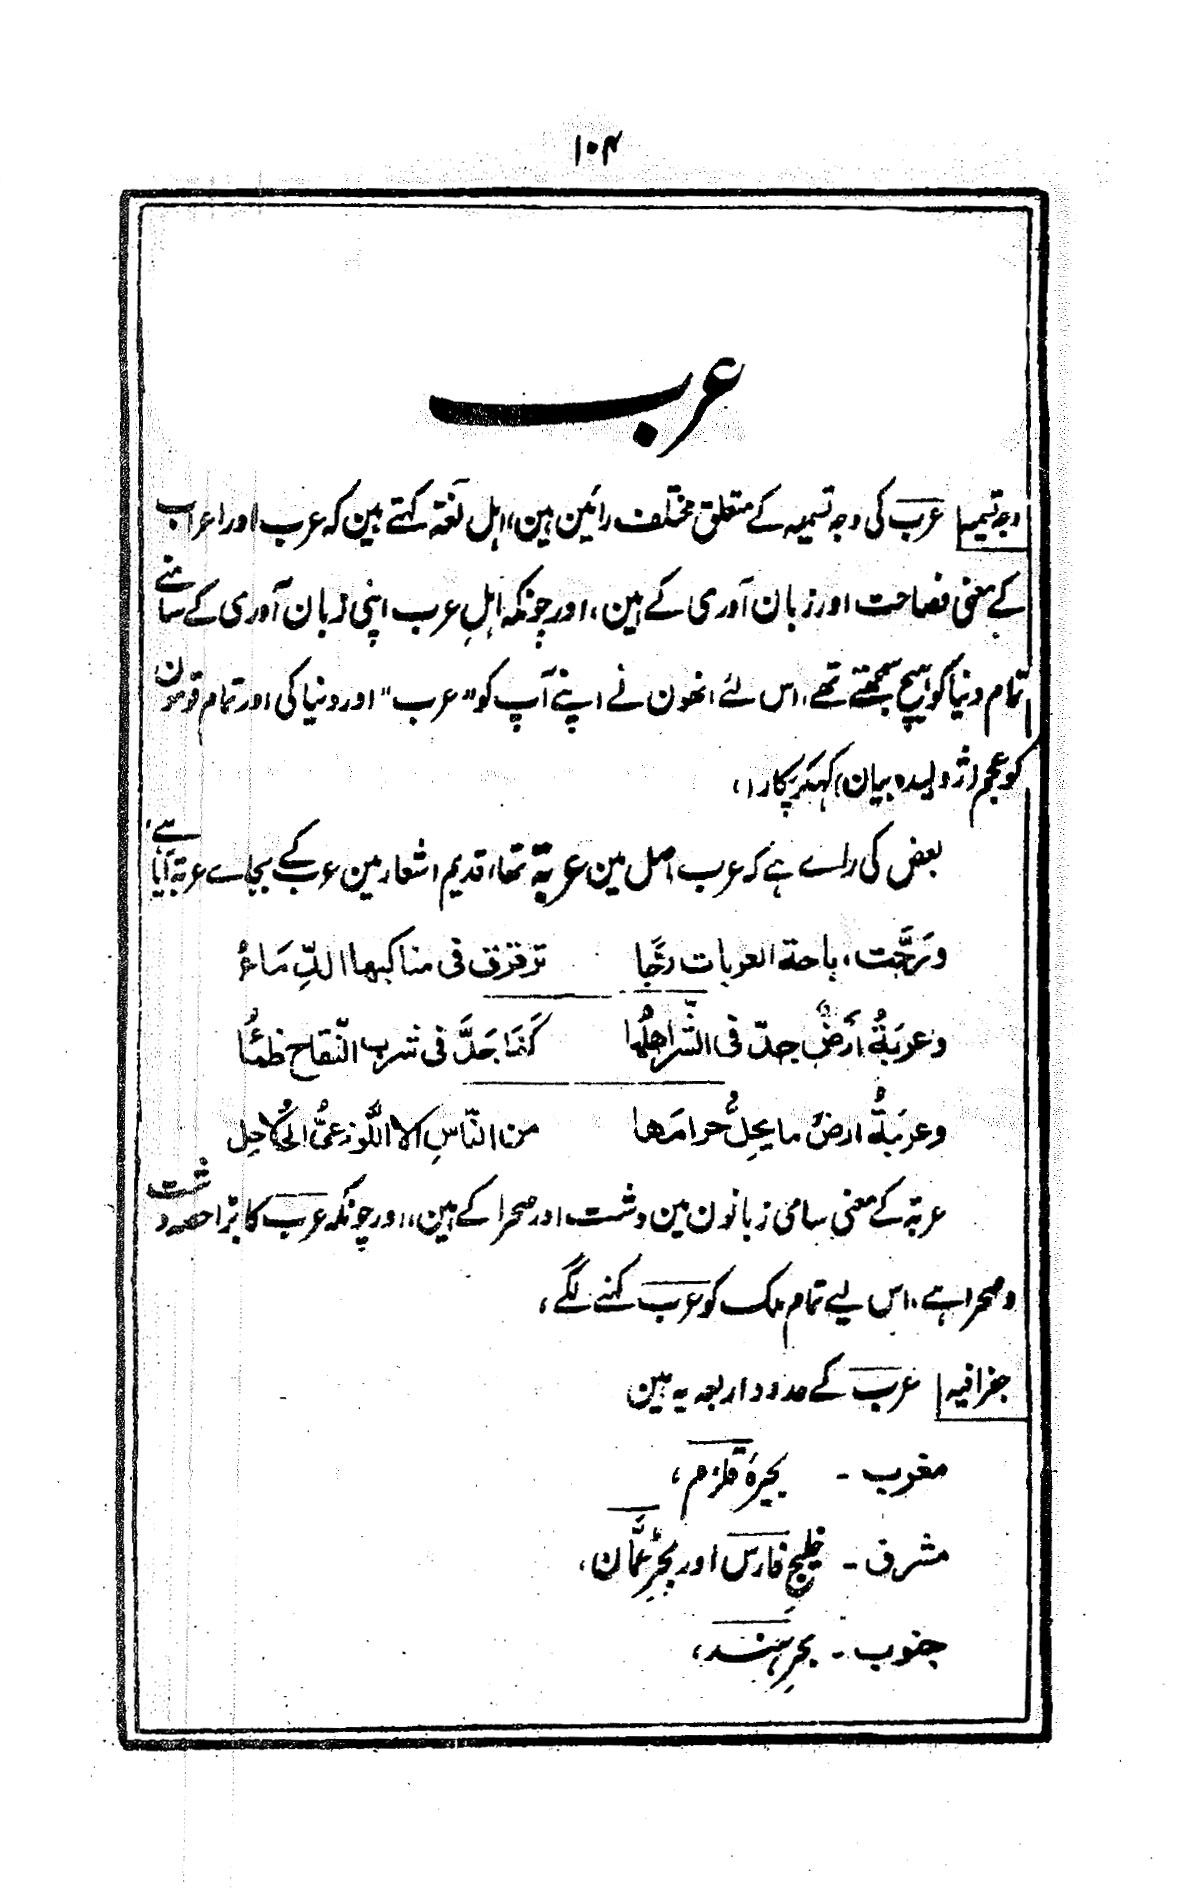 ۱۰۴
عرب
وجہ تسمیہ عرب کی وجہ تسمیہ کے متعلق مختلف رائین ہین، اہل لغۃ کہتے ہین کہ عرب اور اعراب
کے معنی فصاحت اور زبان آوری کے ہین، اور چونکہ اہلِ عرب اپنی زبان آوری کے سامنے
تمام دنیا کو ہیچ سمجھتے تھے، اس لئے انھون نے اپنے آپ کو "عرب" اور دنیا کی اور تمام قومون
کو عجم (ژولیدہ بیان) کہکر پکارا،
بعض کی رائے ہے کہ عرب اصل مین عربۃ تھا، قدیم اشعار مین عرب کے بجاے عربۃ آیا ہے،
ورَجَّت، باحة العربات رجًّا ترقرق فی مناکبها الدِّمَاءُ
وعرَبَةُ أرَضٌ جدّ فی الشّر اهلُها کَمَا جَدَّ فی شرب النّقاح ظمَُا
وعرَبَةُ ارضٌ ما یحِلُّ حرامَها من النّاسِ الا اللّوذعیُّ الحُلاحِل
عربۃ کے معنی سامی زبانون مین دشت اور صحرا کے ہین، اور چونکہ عرب کا بڑا حصہ دشت
و صحرا ہے، اس لیے تمام ملک کو عرب کہنے لگے،
جغرافیہ عرب کے حدود اربعہ یہ ہین
مغرب - بحیرۂ قلزم،
مشرق - خلیج فارس اور بحرِ عمّان،
جنوب - بحرِ ہند،